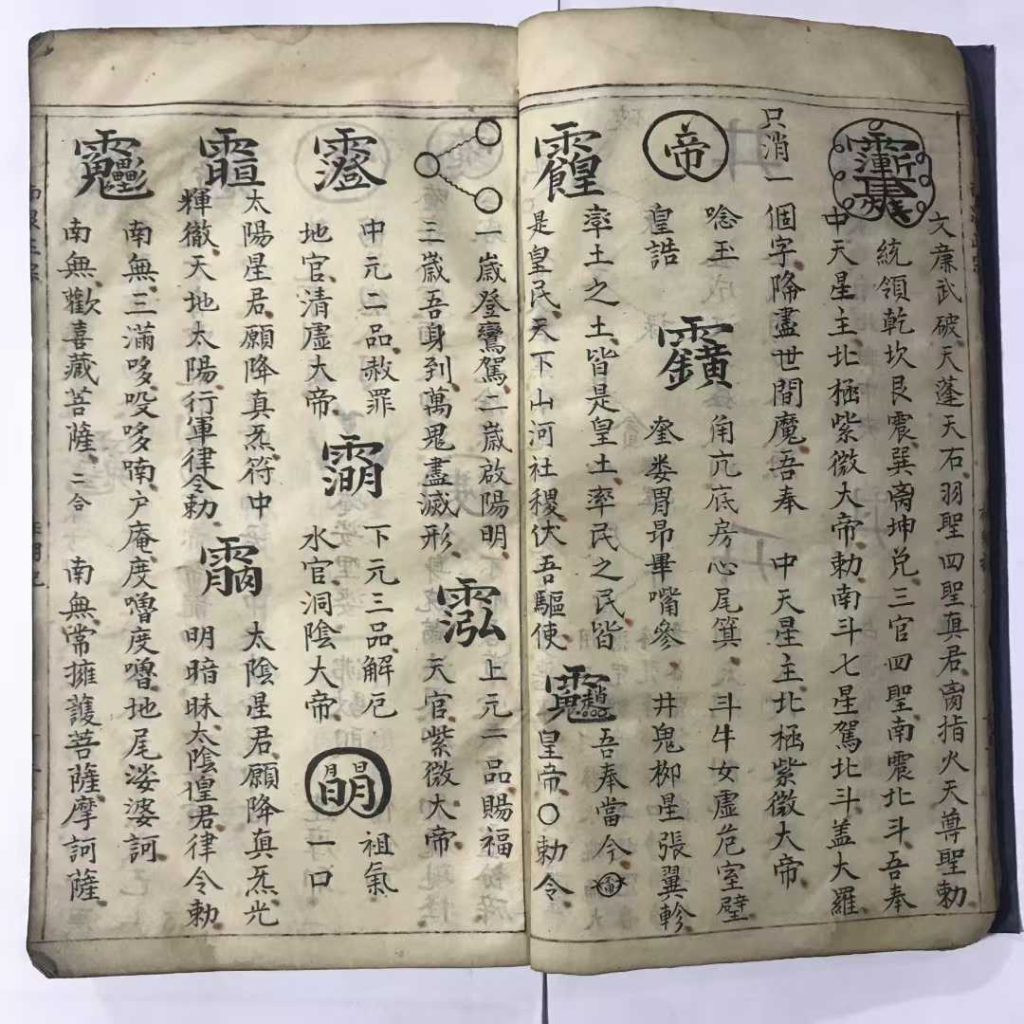 文㢘武破天蓬天石羽聖四聖真君啇指火天尊聖勅
統領乾坎艮震巽离坤兑三官四聖南震北斗吾奉
中天星主北極紫微大帝勅南斗七星駕北斗盖大羅
只消一個字降盡世間魔吾奉 中天星主北極紫微大帝
唸玉 角亢底房心尾箕 斗牛女虛危室壁
帝 皇誥 奎娄胃昴畢嘴參 井鬼柳星張翼軫
率土之土皆是皇土率民之民皆 吾奉當今帝
是皇民天下山河社稷伏吾驅使 皇帝〇勅令
一歲登鸞駕二歲啟陽明 上元一品賜福
三歲吾身到萬鬼盡滅形 天官紫微大帝
中元二品赦罪 下元三品解厄 祖氣
地官清虛大帝 水官洞陰大帝 一口
太陽星君願降真炁符中 太陰星君願降真炁光
輝徹天地太陽行軍律令勅 明暗昧太陰徨君律令勅
南無三滿哆哎哆喃户庵度嚕度嚕地尾婆婆訶
南無歡喜藏菩薩二合 南無常擁護菩薩摩訶薩